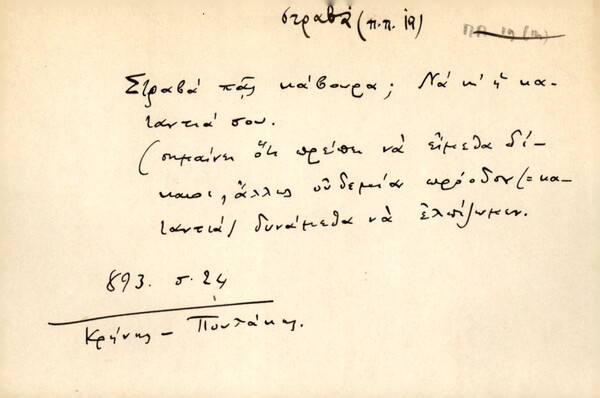 στραβά (π.π. 19)
ΠΠ 19 (14)
Στραβά πᾷς κάβουρα; Νά κι ἡ κα-
ταντιά σου.
(σημαίνει ὅτι πρέπει νὰ εἴμεθα δί-
καιοι, ἄλλως οὐδεμίαν πρόοδον (= κα-
ταντιά) δυνάμεθα νὰ ἐλπίζωμεν.
893. σ. 24
Κρήνης - Πουλάκης.